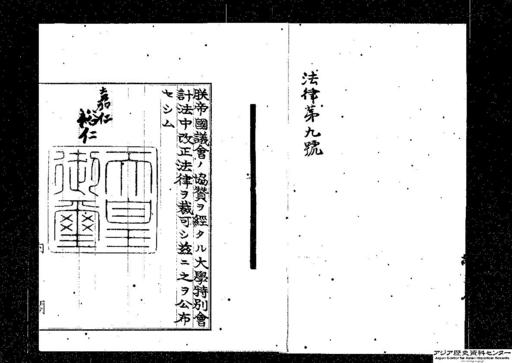 法律第九號
朕帝國議會ノ協贊ヲ經タル大學特別會
計法中改正法律ヲ裁可シ茲ニ之ヲ公布
セシム
嘉仁
裕仁
天皇
御璽
アジア歴史資料センター
Japan Center for Asian Historical Records